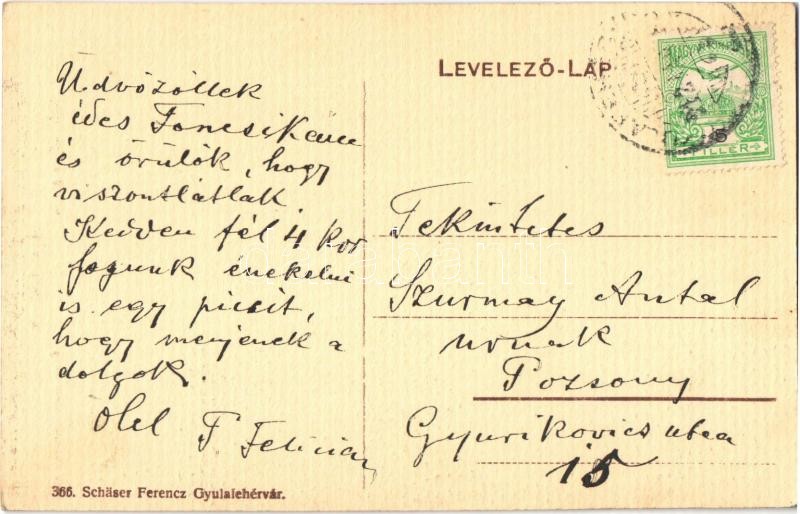 LEVELEZŐ-LAP
Üdvözöllek
édes Toncsikám
és örülök, hogy
viszontlátlak.
Kedden fél 4 kor
fogunk énekelni
is egy picsit,
hogy menjenek a
dolgok.
Ölel
F Felician
Tekintetes
Szurmay Antal
urnak
Pozsony
Gyurikovics utca
15
FILLÉR
366. Schäser Ferencz Gyulafehérvár.